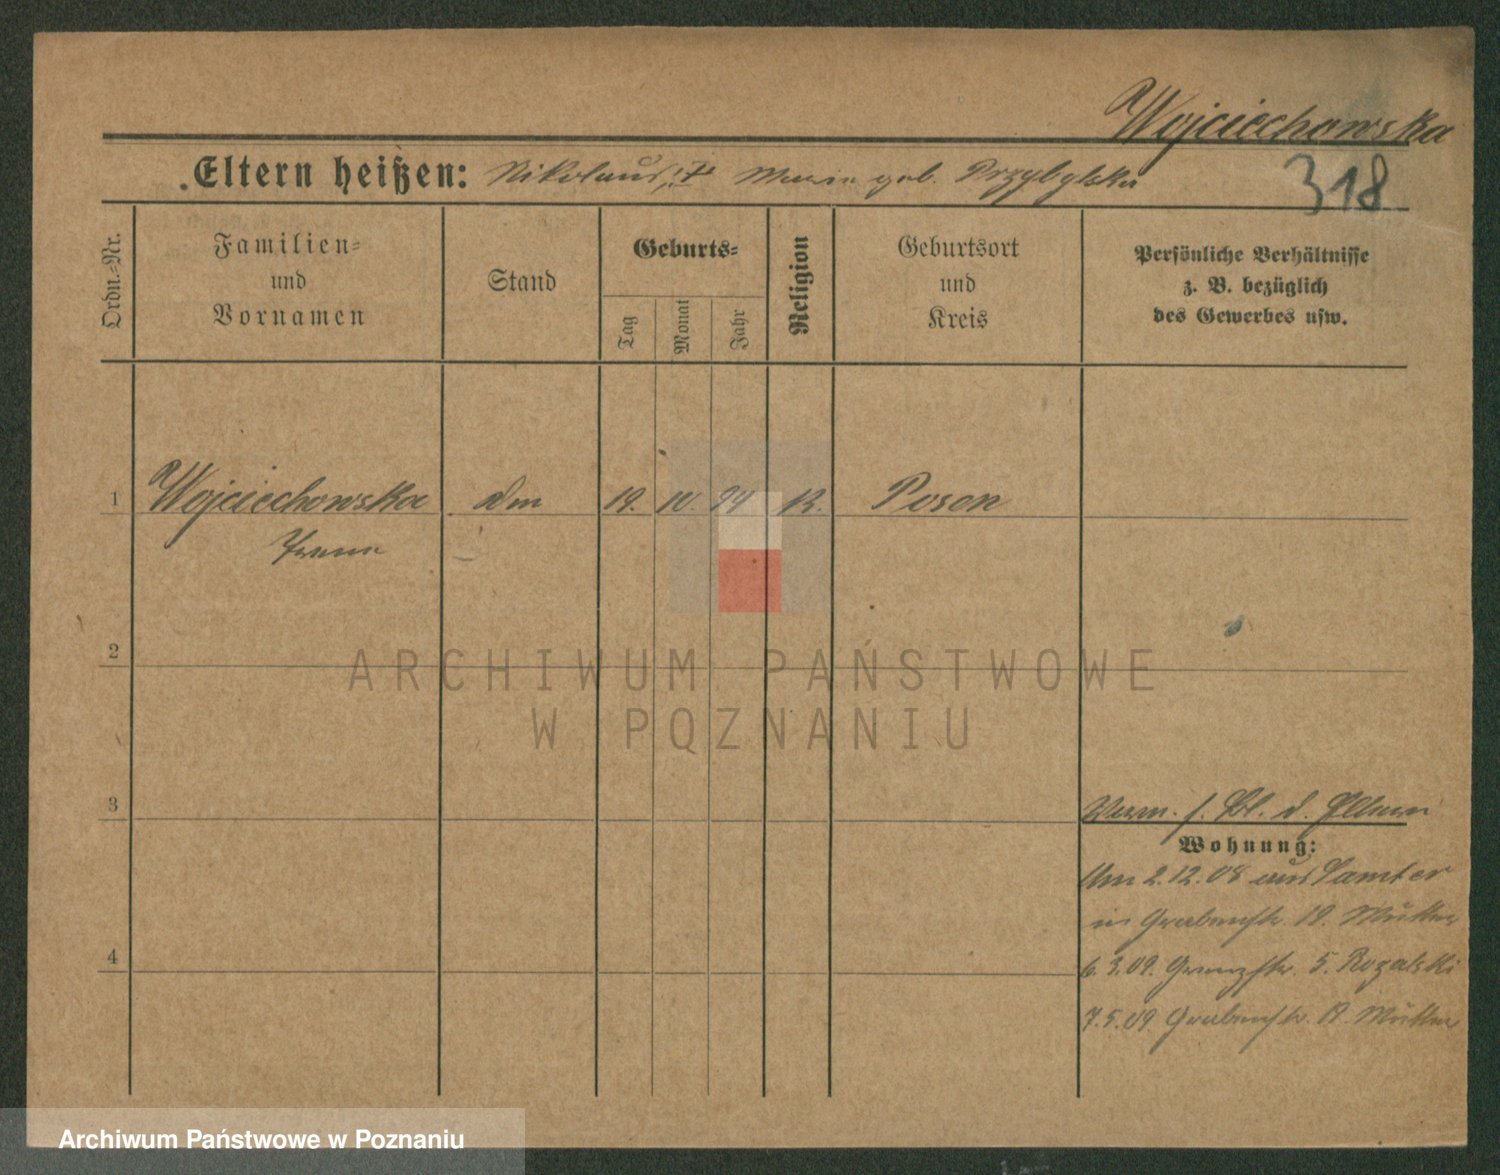 Wojciechowska
318
Eltern heißen: Nikolaus † Marie geb. Przybylska
Ordn.-Nr.
Familien-
und
Vornamen
Stand
Geburts-
Tag
Monat
Jahr
Religion
Geburtsort
und
Kreis
Persönliche Verhältnisse
z. B. bezüglich
des Gewerbes usw.
1 Wojciechowska 19. 10. 94 K. Posen
2
3
Verm. s. Bl. d. Eltern
Wohnung:
Am 2.12.08 aus Samter
in Grabenstr. 19. Mutter
6.3.09. Grenzstr. 5. Rozalski
4
7.5.09 Grabenstr. 19 Mutter
ARCHIWUM PAŃSTWOWE
W POZNANIU
Archiwum Państwowe w Poznaniu